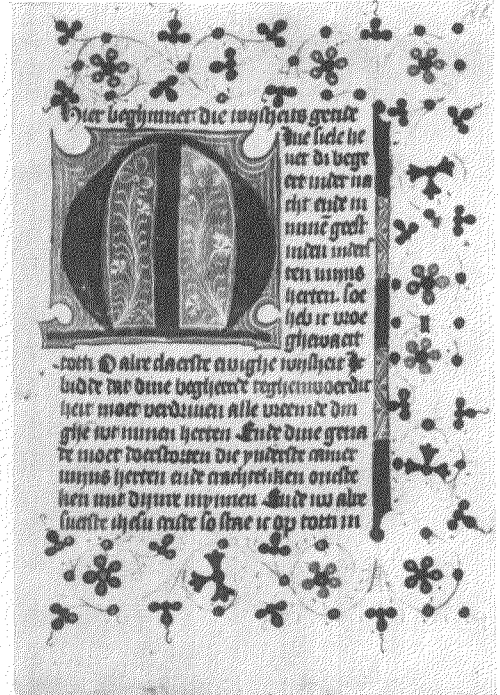 Hier beghinnet die wijsheits getide
Mine siele he
uet di bege
ert inder na
cht ende in
minē geest
inden inders
ten mijns
herten. soe
heb ic vroe
ghewaect
totti O alre claerste ewighe wijsheit Ic
bidde dat dine begheerde teghenwoerdic
heit moet verdriuen alle vremde din
ghe wt minen herten Ende dine gena
de moet doerstorten die ynderste camer
mijns herten ende crachteliken ontste
ken mit dijnre mynnen Ende nv alre
suetste ihesu criste so stae ic op totti in